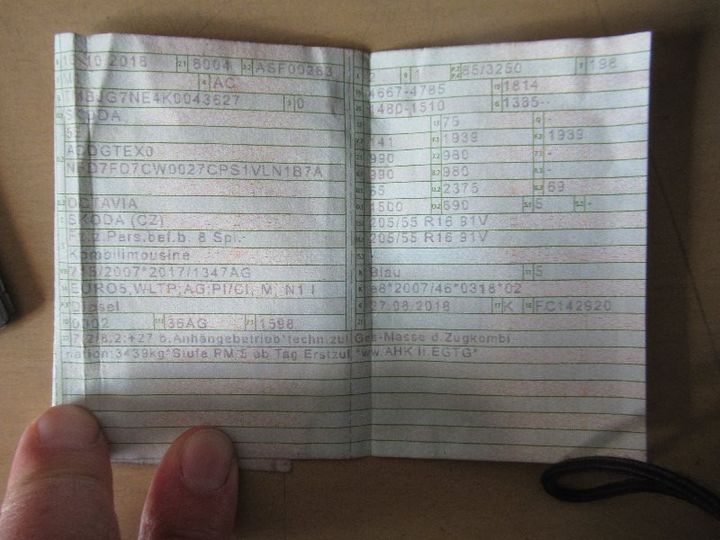 10.2018 8004 ASF00263
M1 AC
TMBJG7NE4K0043627 0
SKODA
5E
ACDGTEX0
NFD7FD7CW0027CPS1VLN1B7A
OCTAVIA
SKODA (CZ)
Fz.z.Pers.bef.b. 8 Spl.
Kombilimousine
715/2007*2017/1347AG
WLTP;AG;PI/CI, M, N1 I
Diesel
0002 36AG 1598
1 85/3250 198
4667-4785 1814
1480-1510 1335--
75 -
141 1939 1939
990 980 -
990 980 -
65 2375 69
1500 690 5 -
205/55 R16 91V
205/55 R16 91V
Blau 5
e8*2007/46*0318*02
27.08.2018 K FC142920
7.2/8.2:+27 b.Anhängebetrieb*techn.zul.Ges-Masse d.Zugkombi
nation:3439kg*Stufe PM 5 ab Tag Erstzul.*ww.AHK lt.EGTG*